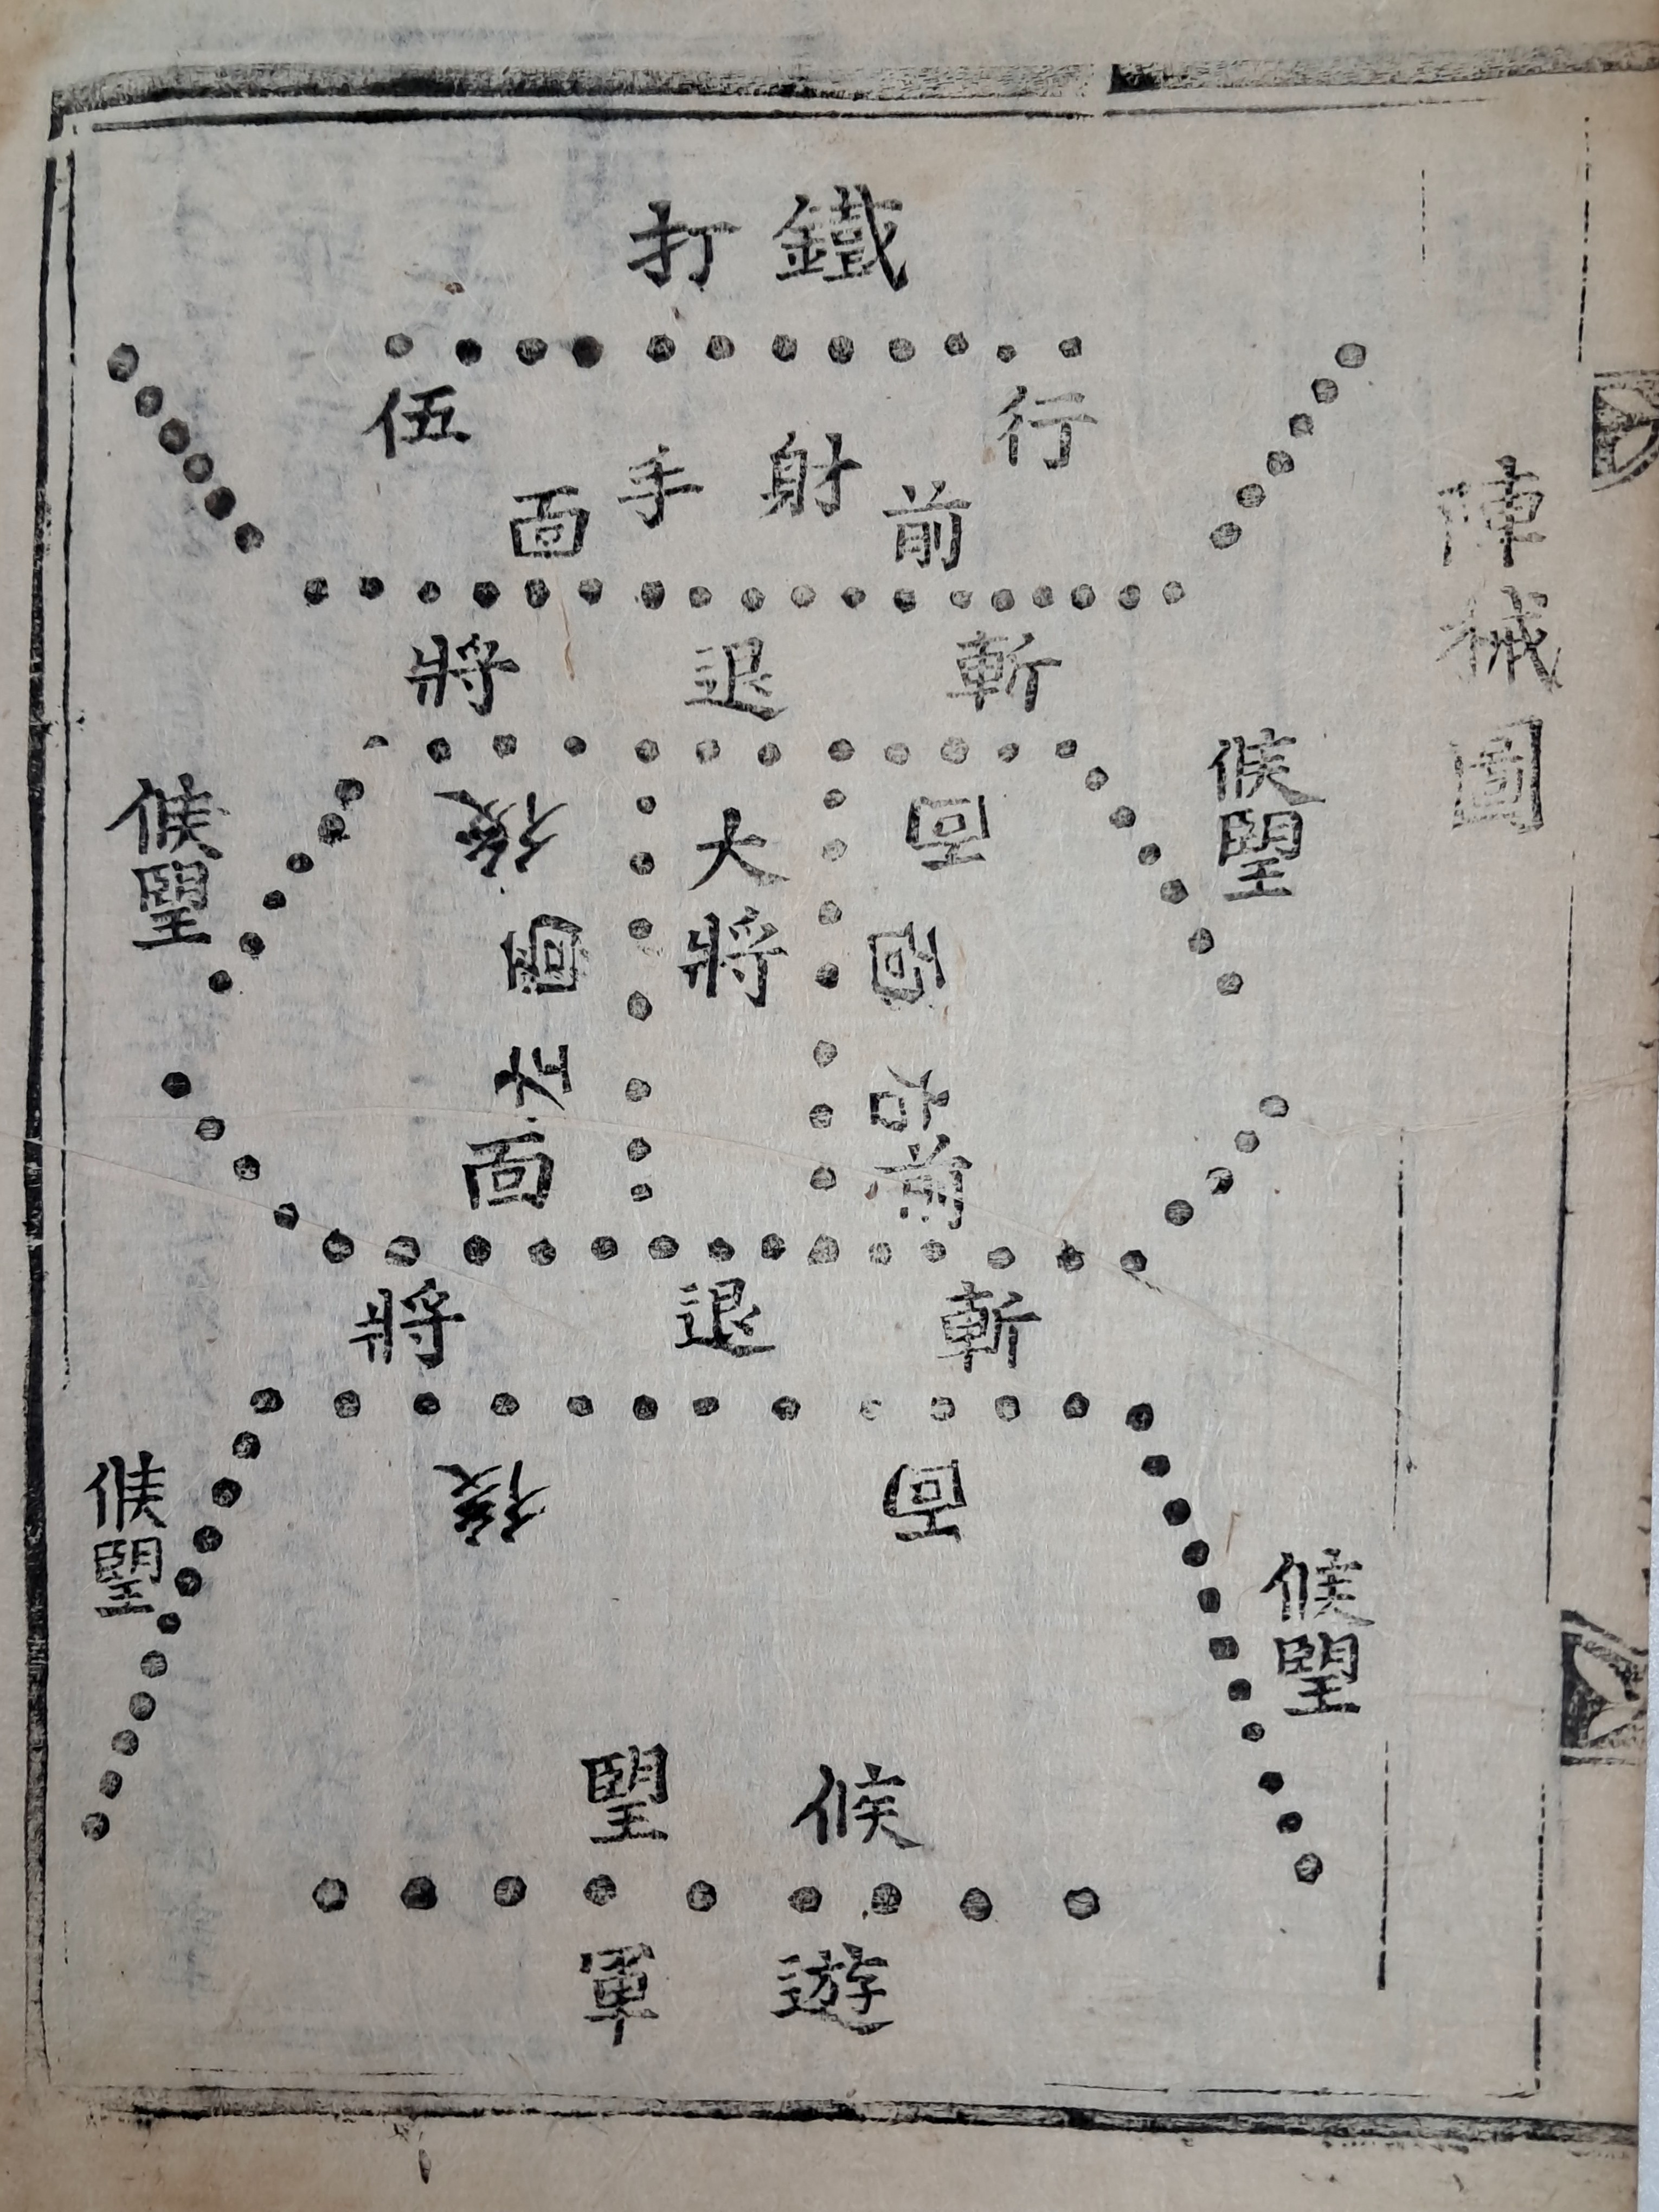 陣械圖
鐵打
行伍
射手
前面
斬退將
候望
候望
大將
面後
右面
左面
前面
斬退將
面後
候望
候望
候望
遊軍